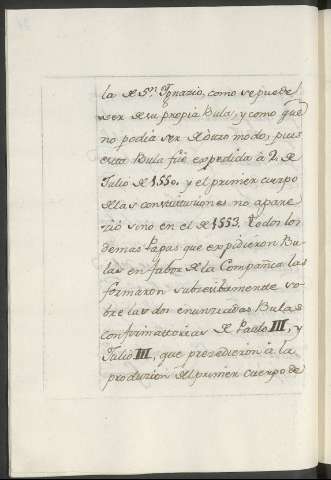 la de Sn. Ignazio, como se puede
ver de su propia Bula, y como que
no podia ser de otro modo, pues
esta Bula fue expedida à 2. de
Julio de 1550. y el primer cuerpo
de las constituciones no apare
zió sino en el de 1553. Todos los
demas Papas que expidieron Bu
las en fabor de la Compañia las
formaron subcesibamente so
bre las dos enunziadas Bulas
confirmatorias de Paulo III, y
Julio III, que prezedieron à la
produzion del primer cuerpo de